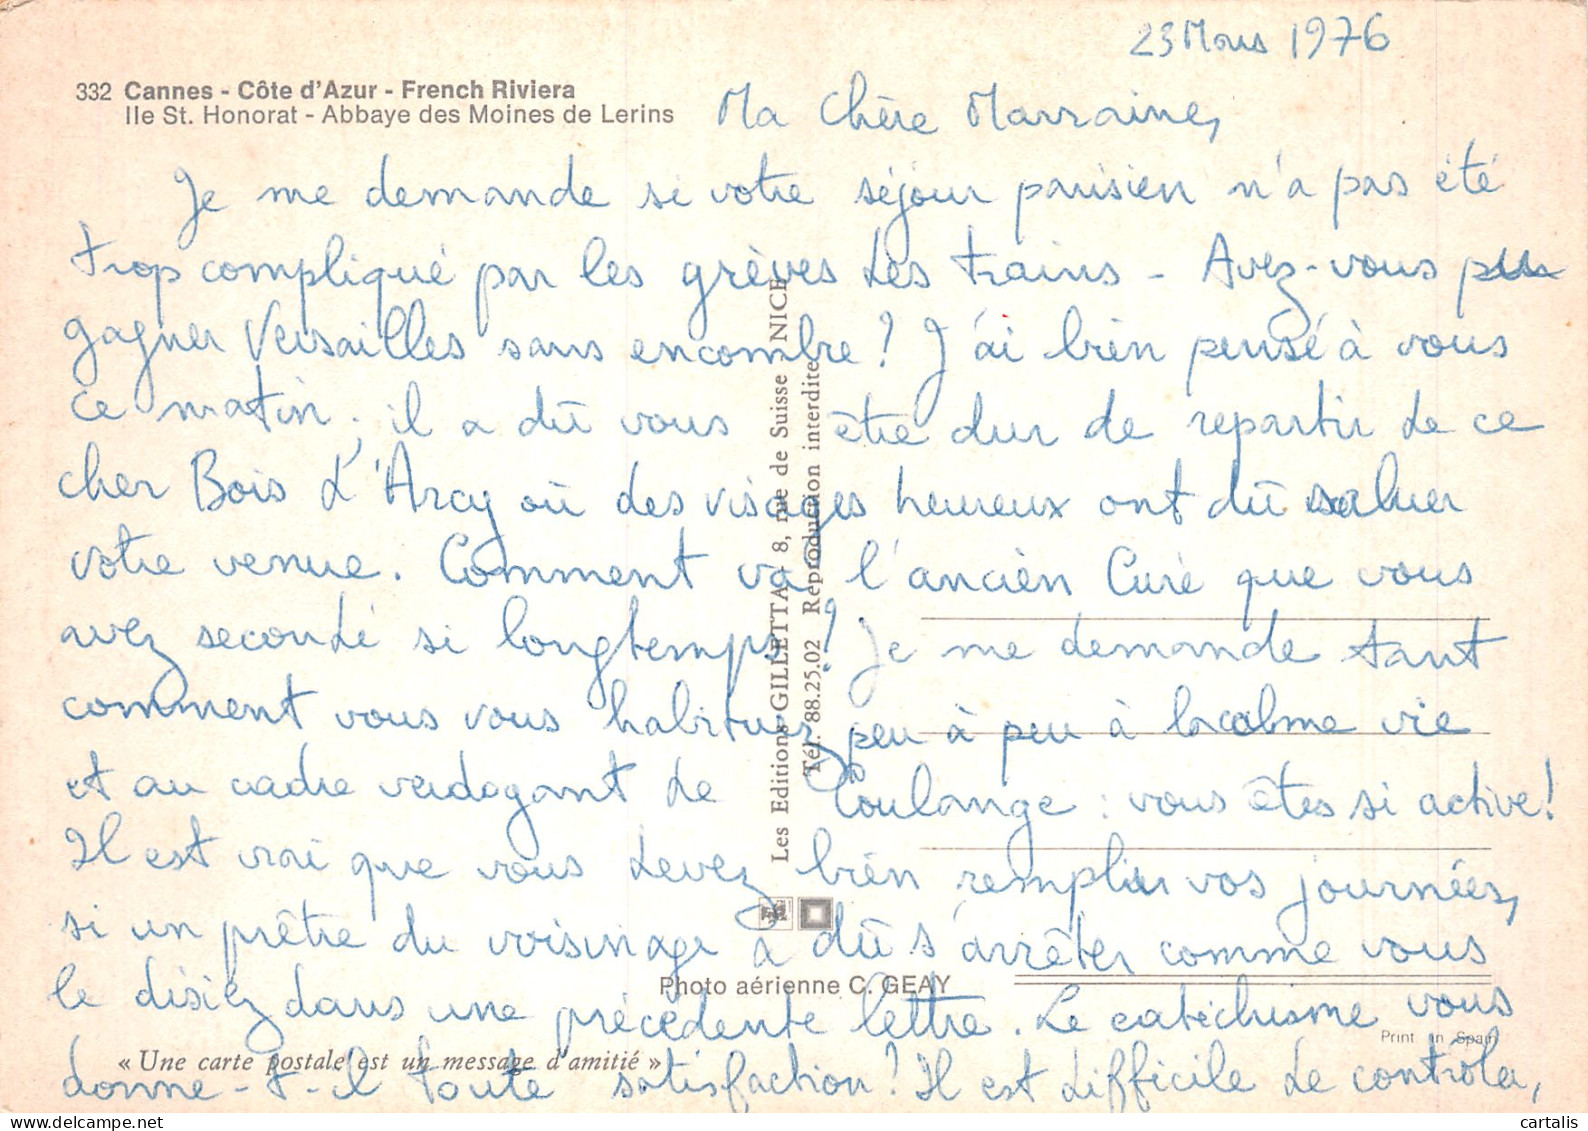 23 Mars 1976
332 Cannes - Côte d'Azur - French Riviera
Ile St. Honorat - Abbaye des Moines de Lerins
Ma Chère Marraine,
Je me demande si votre séjour parisien n'a pas été
trop compliqué par les grèves des trains - Avez-vous pu
gagner Versailles sans encombre ? J'ai bien pensé à vous
ce matin ; il a dû vous être dur de repartir de ce
cher Bois d'Arcy où des visages heureux ont dû saluer
votre venue. Comment va l'ancien Curé que vous
avez secondé si longtemps ? Je me demande tant
comment vous vous habituez peu à peu à la calme vie
et au cadre verdoyant de Coulange : vous êtes si active !
Il est vrai que vous devez bien remplir vos journées,
si un prêtre du voisinage a dû s'arrêter comme vous
le disiez dans une précédente lettre. Le catéchisme vous
donne-t-il toute satisfaction ? Il est difficile de contrôler,
Les Editions GILLETTA - 8, rue de Suisse NICE
Tél. 88.25.02 Reproduction interdite
Photo aérienne C. GEAY
Print in Spain
« Une carte postale est un message d'amitié »
cartalis